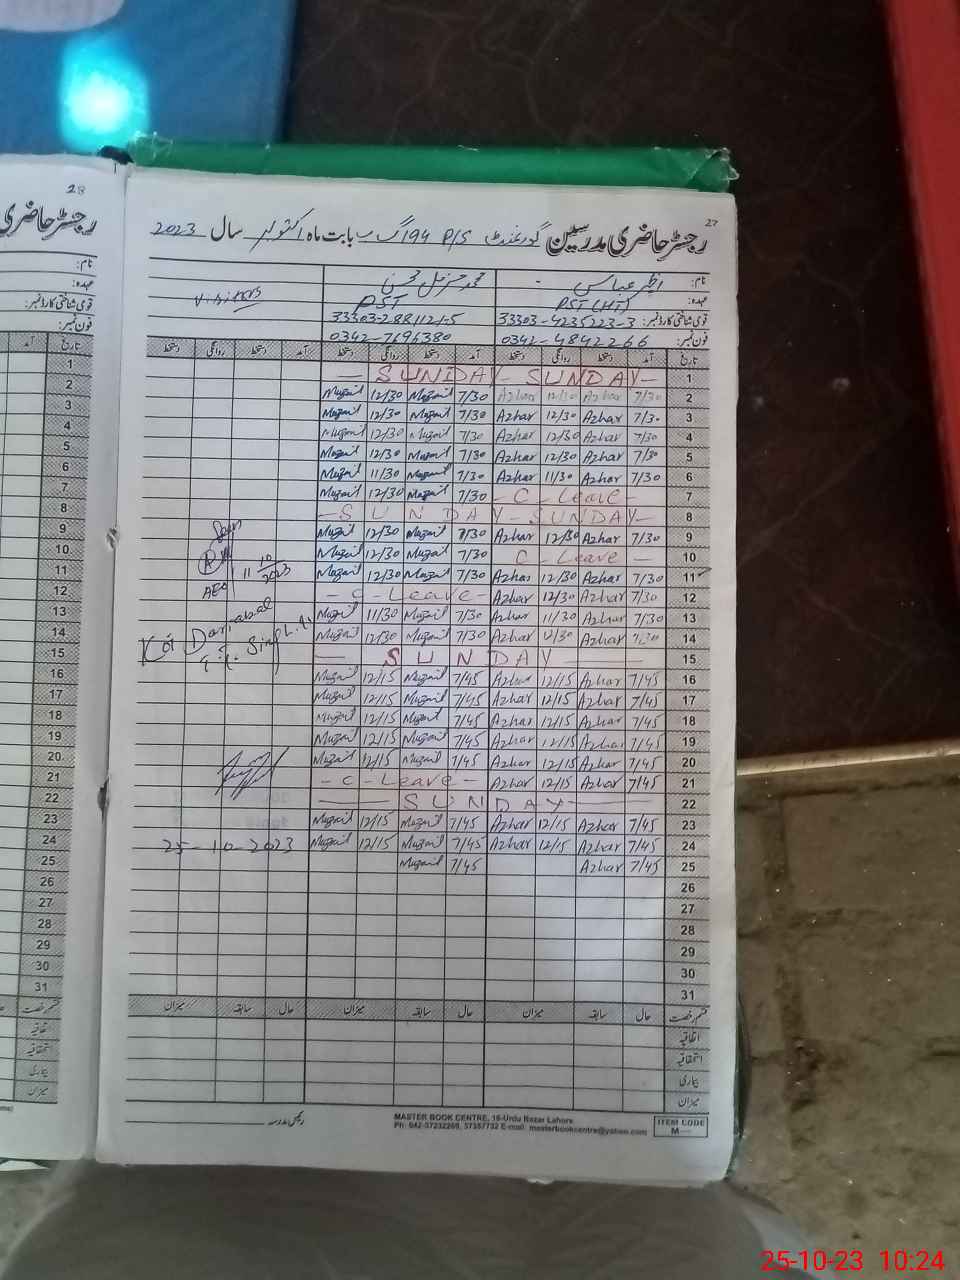 28
رجسٹر حاضری
نام:
عہدہ:
قومی شناختی کارڈ نمبر:
فون نمبر:
آمد تاریخ
1
2
3
4
5
6
7
8
9
10
11
12
13
14
15
16
17
18
19
20
21
22
23
24
25
26
27
28
29
30
31
27
رجسٹر حاضری مدرسین گورنمنٹ P/S 194 گ ب بابت ماہ اکتوبر سال 2023
نام: اظہر عباس محمد مزمل محسن
عہدہ: PST (HT) PST Visitors
قومی شناختی کارڈ نمبر: 33303-4235223-3 33303-2881121-5
فون نمبر: 0342-4842266 0342-7696380
تاریخ آمد دستخط روانگی دستخط آمد دستخط روانگی دستخط آمد دستخط روانگی دستخط
— SUNDAY - SUNDAY — 1
Muzmil 12/30 Muzmil 7/30 Azhar 12/30 Azhar 7/30 2
Muzmil 12/30 Muzmil 7/30 Azhar 12/30 Azhar 7/30 3
Muzmil 12/30 Muzmil 7/30 Azhar 12/30 Azhar 7/30 4
Muzmil 12/30 Muzmil 7/30 Azhar 12/30 Azhar 7/30 5
Muzmil 11/30 Muzmil 7/30 Azhar 11/30 Azhar 7/30 6
Muzmil 12/30 Muzmil 7/30 - C - Leave - 7
— SUNDAY - SUNDAY — 8
Muzmil 12/30 Muzmil 7/30 Azhar 12/30 Azhar 7/30 9
Muzmil 12/30 Muzmil 7/30 C - Leave 10
Muzmil 12/30 Muzmil 7/30 Azhar 12/30 Azhar 7/30 11
- C - Leave - Azhar 12/30 Azhar 7/30 12
Muzmil 11/30 Muzmil 7/30 Azhar 11/30 Azhar 7/30 13
Muzmil 12/30 Muzmil 7/30 Azhar Azhar 7/30 14
— SUNDAY — 15
Muzmil 12/15 Muzmil 7/45 Azhar 12/15 Azhar 7/45 16
Muzmil 12/15 Muzmil 7/45 Azhar 12/15 Azhar 7/45 17
Muzmil 12/15 Muzmil 7/45 Azhar 12/15 Azhar 7/45 18
Muzmil 12/15 Muzmil 7/45 Azhar 12/15 Azhar 7/45 19
Muzmil 12/15 Muzmil 7/45 Azhar 12/15 Azhar 7/45 20
- C - Leave - Azhar 12/15 Azhar 7/45 21
— SUNDAY — 22
Muzmil 12/15 Muzmil 7/45 Azhar 12/15 Azhar 7/45 23
25-10-2023 Muzmil 12/15 Muzmil 7/45 Azhar 12/15 Azhar 7/45 24
Muzmil 7/45 Azhar 7/45 25
26
27
28
29
30
31
AEO
11 10/2023
قسم رخصت حال سابقہ میزان حال سابقہ میزان حال سابقہ میزان
اتفاقیہ
استحقاقیہ
بیماری
میزان
MASTER BOOK CENTRE, 18-Urdu Bazar Lahore
Ph: 042-37232265, 37357732 E-mail: masterbookcentre@yahoo.com
ITEM CODE
M—
رئیس مدرسہ
25-10-23 10:24